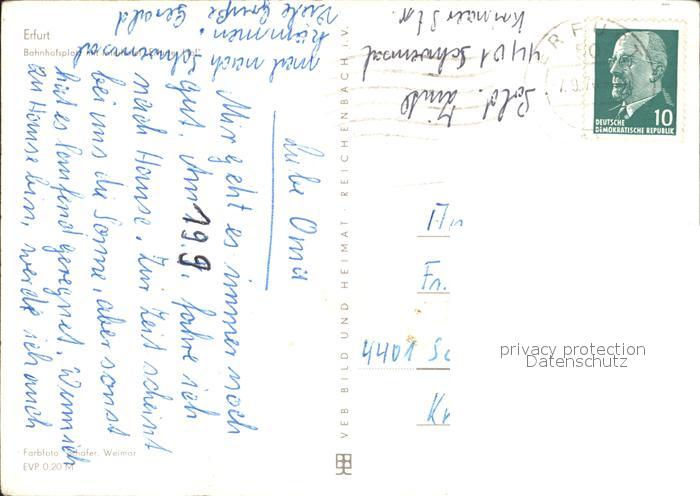 Erfurt
Liebe Oma
Mir geht es immer noch
gut. Am 19.9. fahre ich
nach Hause. Zur Zeit scheint
bei uns die Sonne, aber sonst
hat es laufend geregnet. Wenn ich
zu Hause bin, werde ich auch
mal nach Schwerssol
kommen.
Viele Grüße Gerald
Sold.
4401
VEB BILD UND HEIMAT REICHENBACH I.V.
Farbfoto: Schäfer, Weimar
EVP 0,20 M
DEUTSCHE
DEMOKRATISCHE REPUBLIK
10
An
Fr.
4401 Sc
Kr
privacy protection
Datenschutz